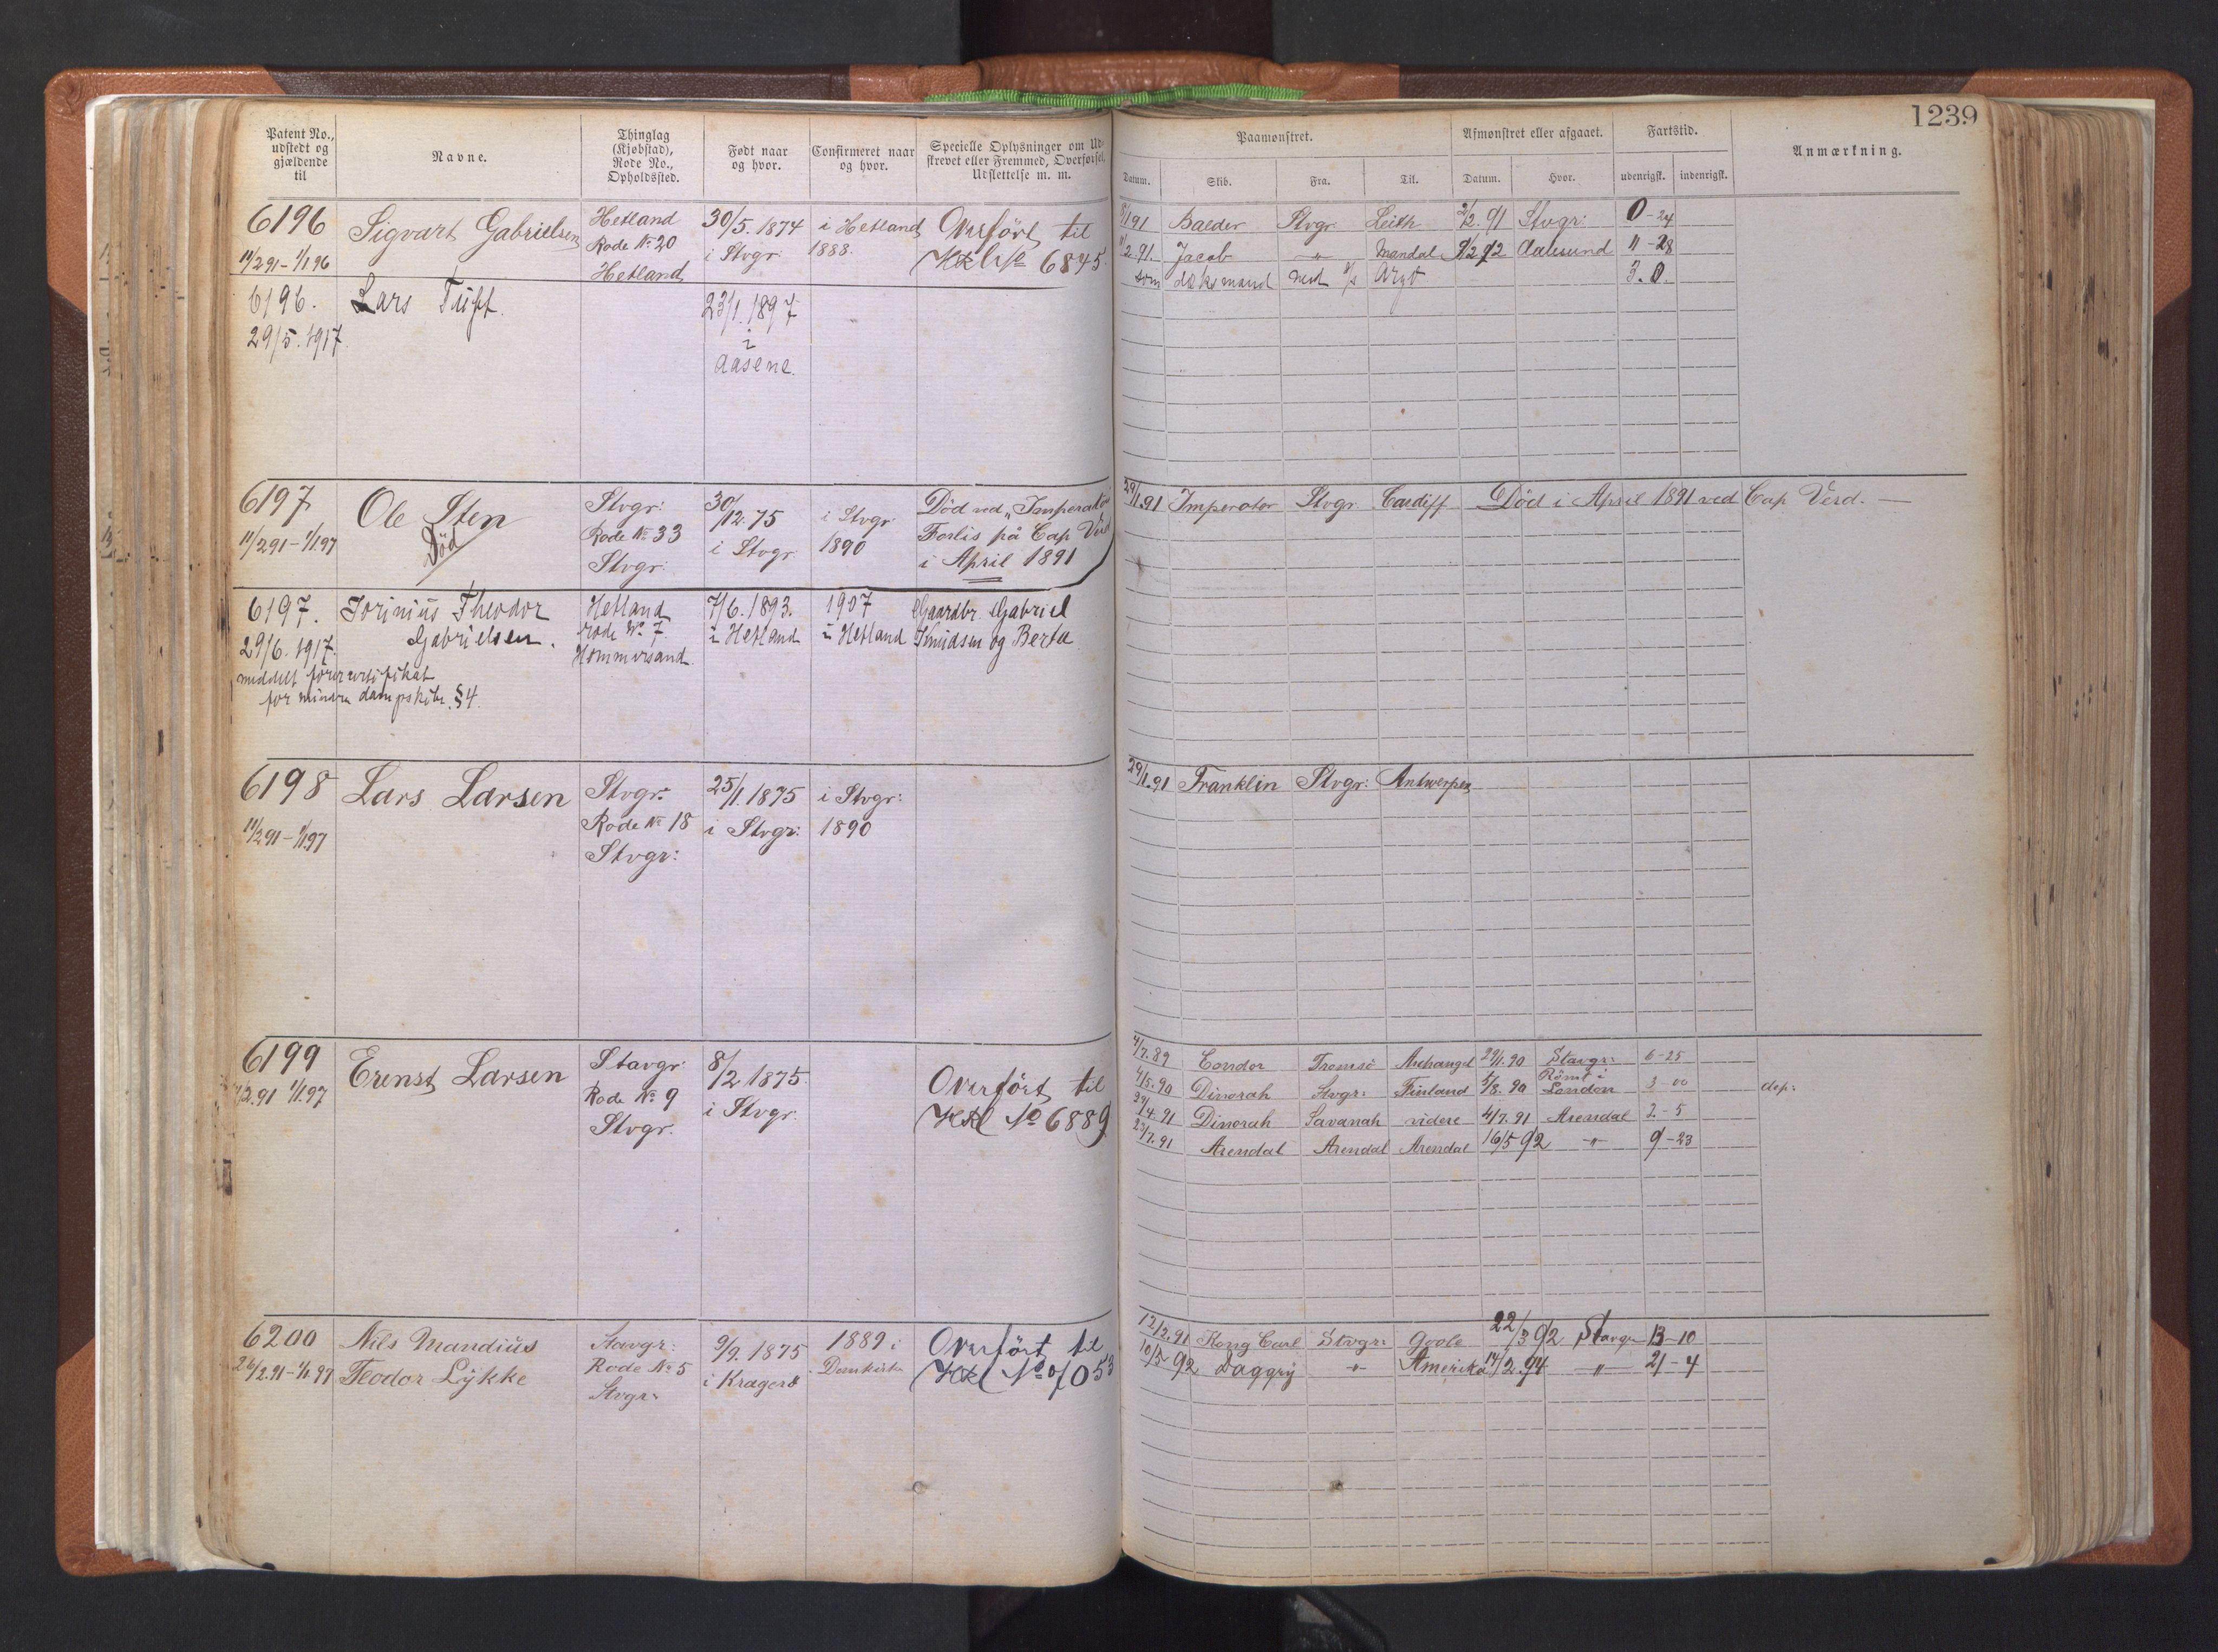 1239
Patent No., udstedt og gjældende til
Navne.
Thinglag (Kjøbstad), Rode No., Opholdssted.
Født naar og hvor.
Confirmeret naar og hvor.
Specielle Oplysninger om Ud-
skrevet eller Fremmed, Overførsel,
Udslettelse m. m.
Paamønstret.
Afmønstret eller afgaaet.
Fartstid.
Anmærkning.
Datum. Skib. Fra. Til. Datum. Hvor. udenrigsk. indenrigsk.
6196 Sigvart Gabrielsen Hetland 30/5. 1874 i Hetland Overført til
11/2 91 - 1/1 96 Rode No 20 i Stvgr: 1888. 6845
Hetland
8/1 91 Balder Stvgr Leith 2/2. 91 Stvgr: 0-24
11/2.91. Jacob -"- Mandal 9/2 92 Aalesund 11-28
som dæksmand med Argo 3.0.
6196. Lars Tuft. 23/1. 1897
29/5. 1917. i
Aasene.
6197 Ole Sten Stvgr: 30/12. 75 i Stvgr. Død ved "Imperators
11/2 91 - 1/1 97 Død Rode No 33 i Stvgr. 1890 Forlis på Cap Verd
Stvgr: i April 1891
29/1.91 Imperator Stvgr. Cardiff Død i April 1891 ved Cap Verd. —
6197. Jorinius Theodor Hetland 7/6. 1893. 1907 Gaardbr. Gabriel
29/6. 1917. Gabrielsen. rode No 7. i Hetland i Hetland Knudsen og Berta
Hommersand.
meddelt førercertifikat
for mindre dampskibe. §4.
6198 Lars Larsen Stvgr: 25/1. 1875 i Stvgr:
11/2 91 - 1/1 97 Rode No 18 i Stvgr: 1890
Stvgr:
29/1.91 Franklin Stvgr: Antwerpen
6199 Erenst Larsen Stavgr: 8/2 1875. Overført til
1/1 97 Rode No 9 i Stvgr. No 6889
Stvgr.
4/7.89 Condor Tromsö Archangel 29/1.90 Stavgr: 6-25
4/5.90 Dinorah Stvgr: Finland 5/8. 90 Römt i London 3-00 dep:
29/4.91 Dinorah Savanah videre 4/7. 91 Arendal 2-5
23/7.91 Arendal Arendal Arendal 16/5 92 -"- 9-23
6200 Nils Mandius Stavgr: 9/9. 1875 1889 i Overført til
26/2.91 - 1/1 97 Teodor Lykke Rode No 5 i Kragerø Domkirke No 7053
Stvgr:
12/2.91 Kong Carl Stvgr: Goole 22/3 92 Stavgr 13-10
10/5-92 Daggry -"- Amerika 14/2.94 " 21-4